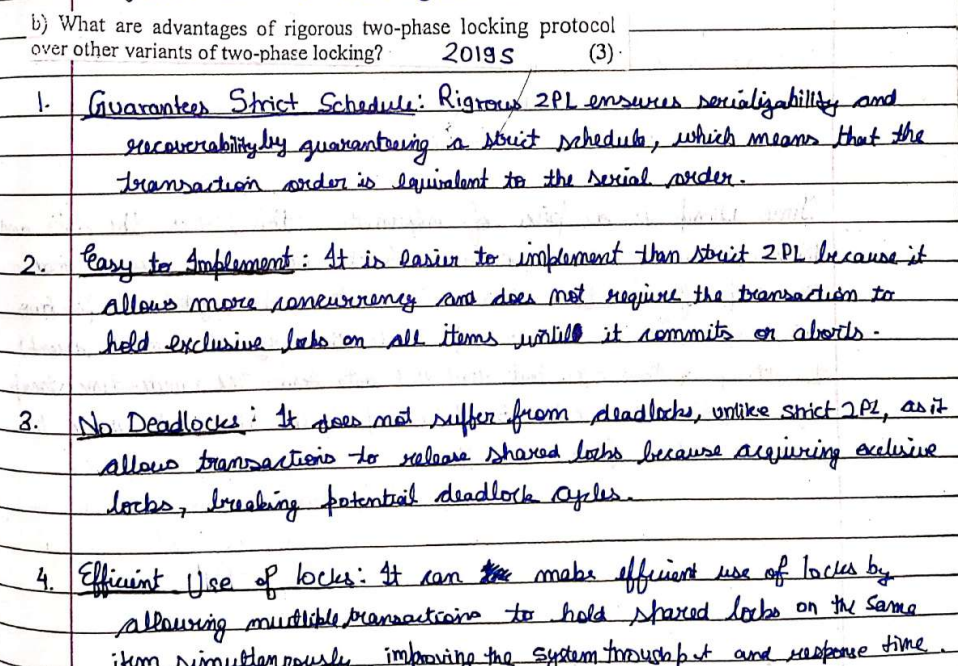 b) What are advantages of rigorous two-phase locking protocol
over other variants of two-phase locking? 2019S (3).
1. Guarantees Strict Schedule: Rigrous 2PL ensures serializabillity and
recoverability by guaranteeing a strict schedule, which means that the
transaction order is equivalent to the serial order.
2. Easy to Implement: It is easier to implement than strict 2PL because it
allows more concurrency and does not require the transaction to
hold exclusive locks on all items untill it commits or aborts.
3. No Deadlocks: It does not suffer from deadlocks, unlike strict 2PL, as it
allows transactions to release shared locks because acquiring exclusive
locks, breaking potential deadlock cycles.
4. Efficient Use of locks: It can make efficient use of locks by
allowing multiple transactions to hold shared locks on the same
item simultaneously improving the system throughput and response time.